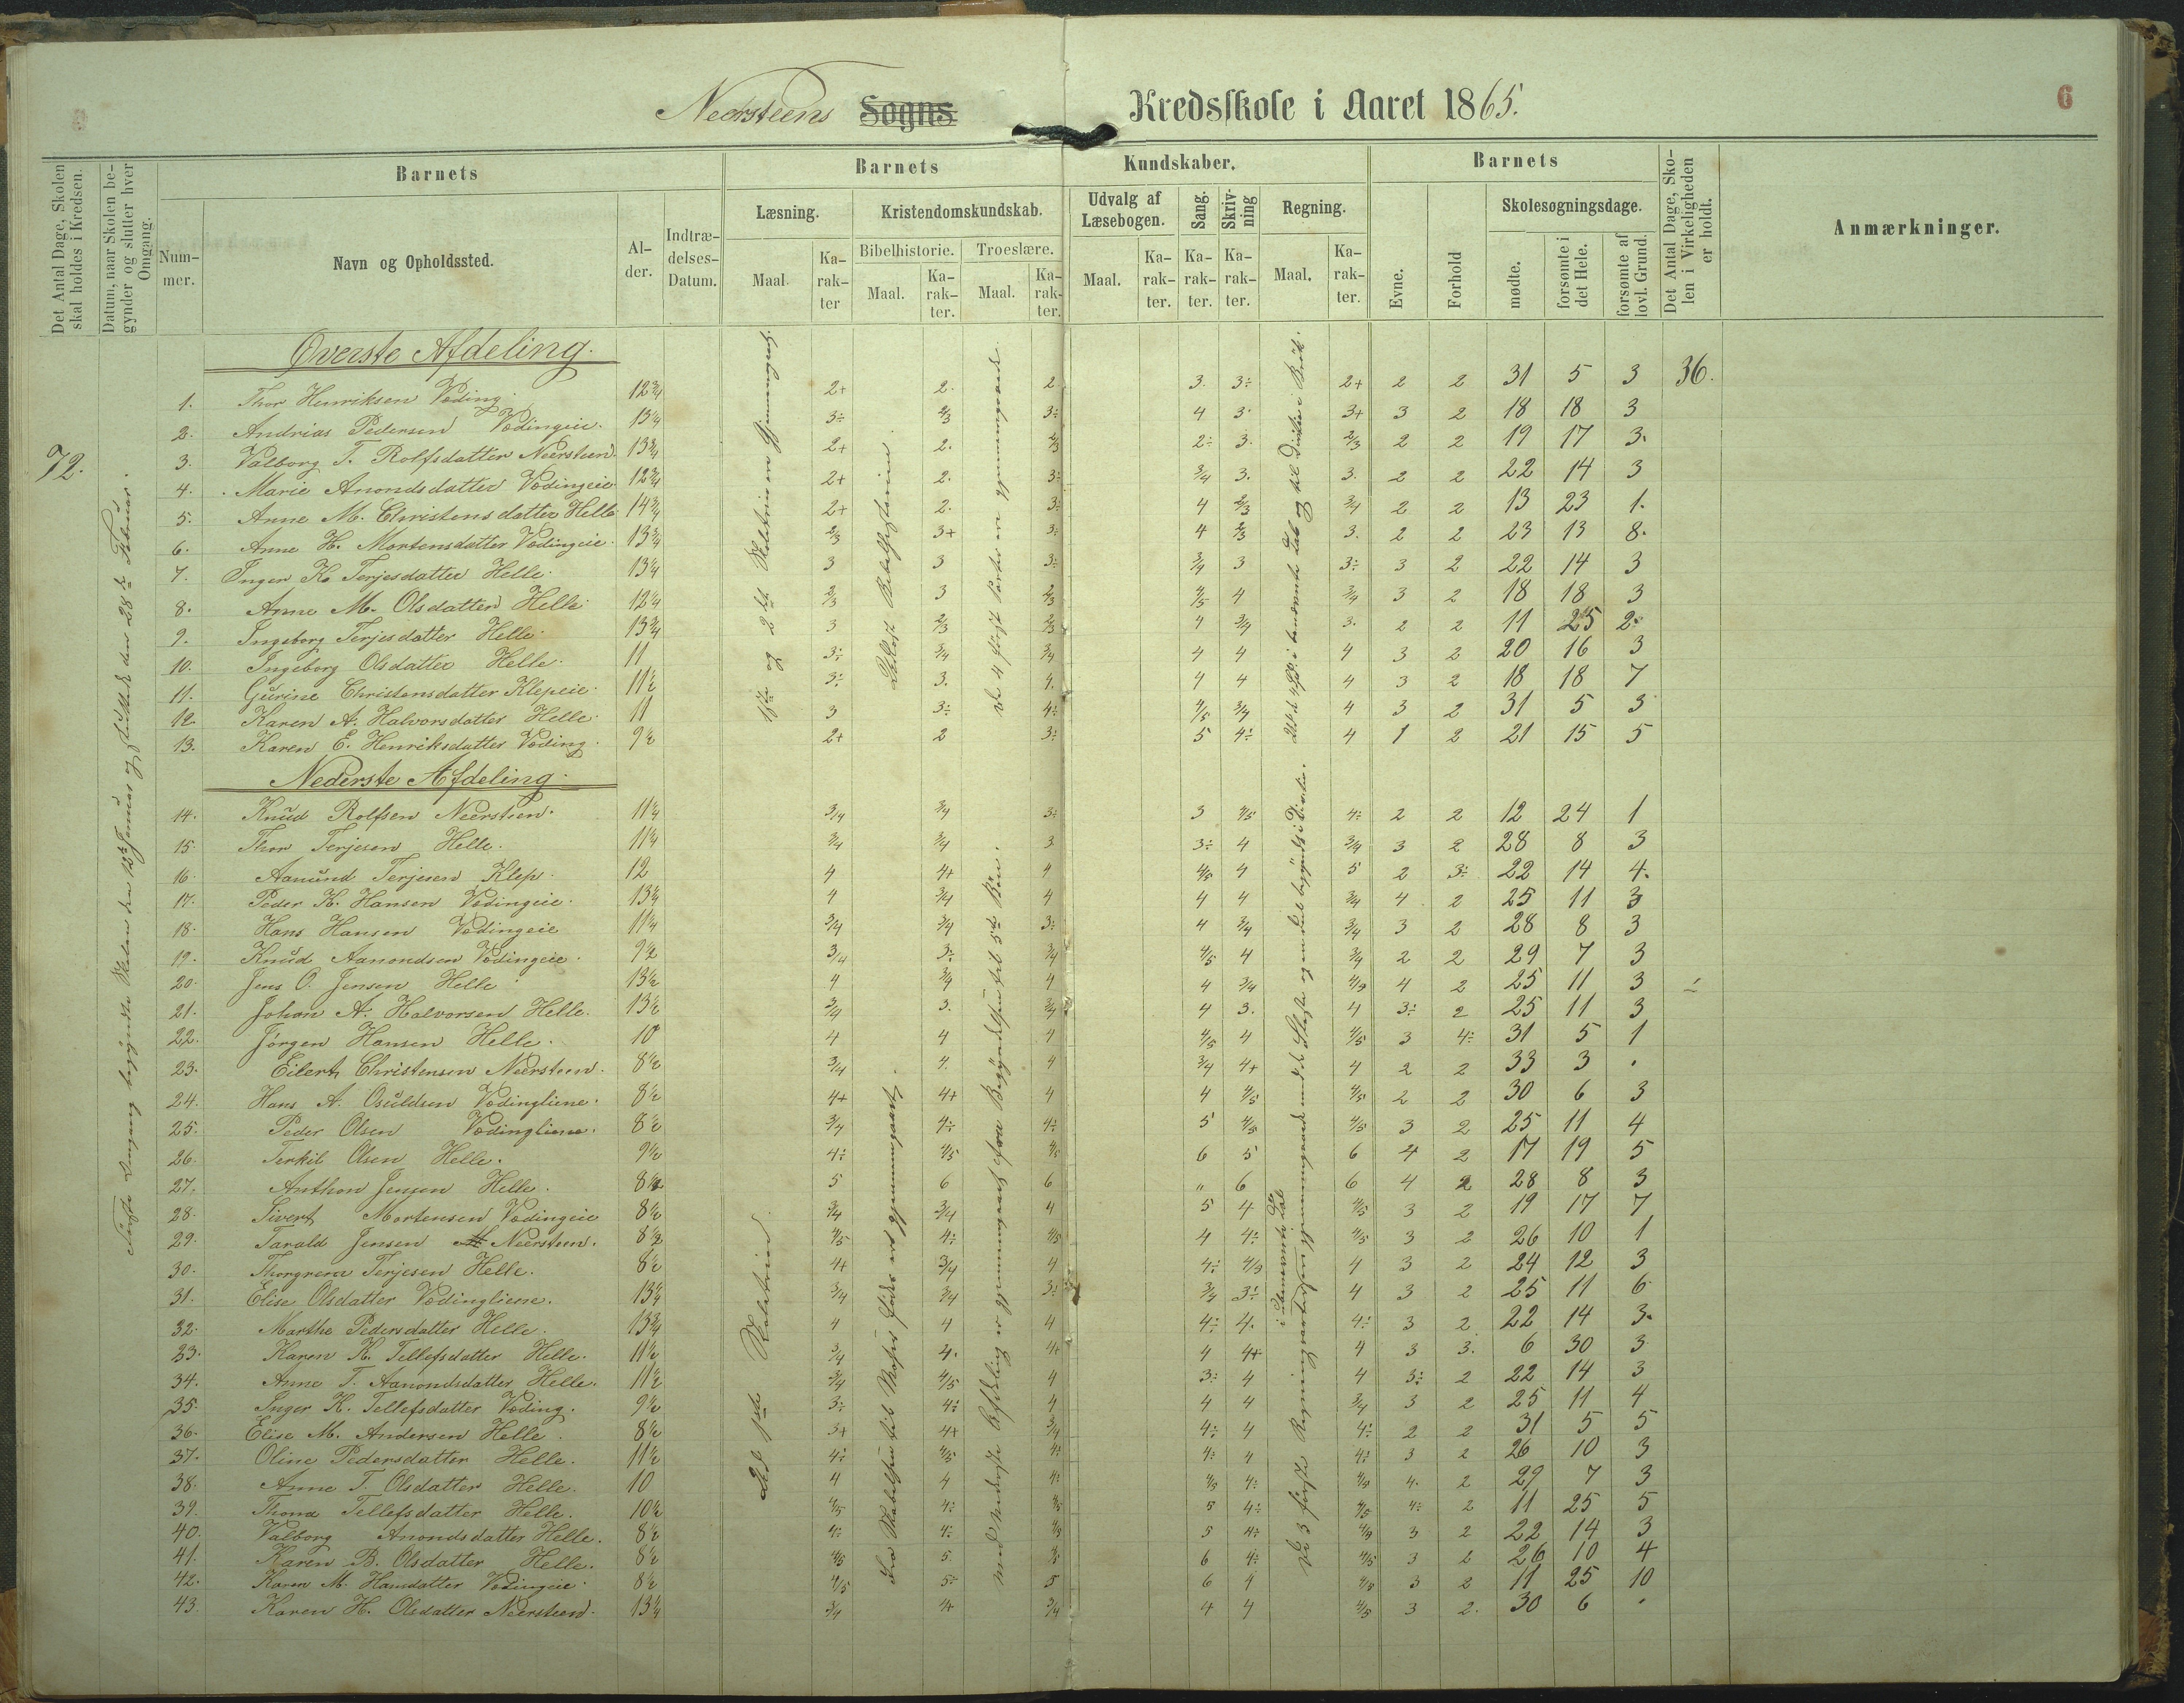 Neersteens Sogns Kredsskole i Aaret 1865.
6
Det Antal Dage, Skolen skal holdes i Kredsen.
Datum, naar Skolen begynder og slutter hver Omgang.
Barnets
Nummer.
Navn og Opholdssted.
Alder.
Indtrædelses-Datum.
Barnets Kundskaber.
Læsning.
Maal.
Karakter
Kristendomskundskab.
Bibelhistorie.
Maal.
Karakter.
Troeslære.
Maal.
Karakter.
Udvalg af Læsebogen.
Maal.
Karakter.
Sang.
Karakter.
Skrivning
Karakter.
Regning.
Maal.
Karakter.
Barnets
Evne.
Forhold
Skolesøgningsdage.
mødte.
forsømte i det Hele.
forsømte af lovl. Grund.
Det Antal Dage, Skolen i Virkeligheden er holdt.
Anmærkninger.
72.
Første Omgang begyndte Skolen den 12te Januar og sluttede den 28de Februar.
Øverste Afdeling.
1. Thor Henriksen Væding. 12 3/4 2+ 2. 2 3. 3÷ 2+ 2 2 31 5 3 36.
2. Andrias Pedersen Vødingeie. 13 1/4 3÷ 2/3 3÷ 4 3. 3+ 3 2 18 18 3
3. Valborg T. Rolfsdatter Neersteen. 13 3/4 2+ 2. 2/3 2÷ 3. 2/3 2 2 19 17 3.
4. Marie Anondsdatter Vødingeie 12 3/4 2+ 2. 3÷ 3/4 3. 3. 2 2 22 14 3
5. Anne M. Christensdatter Helle 14 3/4 2+ 2. 3÷ 4 2/3 3/4 2 2 13 23 1.
6. Anne H. Mortensdatter Vødingeie. 13 3/4 2/3 3+ 3÷ 4 2/3 3. 2 2 23 13 8.
7. Inger K. Terjesdatter Helle. 13 1/4 3 3 3÷ 3/4 3 3÷ 3 2 22 14 3
8. Anne M. Olsdatter Helle 12 1/4 2/3 3 2/3 4/5 4 3/4 3 2 18 18 3
9. Ingeborg Terjesdatter Helle. 13 3/4 3 2/3 2/3 4 3/4 3. 2 2 11 25 2.
10. Ingeborg Olsdatter Helle. 11 3÷ 3/4 3/4 4 4 4 3 2 20 16 3
11. Gurine Christensdatter Klepeie. 11 1/2 3÷ 3. 4. 4 4 4 3 2 18 18 7
12. Karen A. Halvorsdatter Helle. 11 3 3÷ 4÷ 4/5 3/4 4 3 2 31 5 3
13. Karen E. Henriksdatter Væding. 9 1/2 2+ 2 3÷ 5 4÷ 4 1 2 21 15 5
Nederste Afdeling.
14. Knud Rolfsen Neersteen. 11 1/4 3/4 3/4 3÷ 3 4/5 4÷ 2 2 12 24 1
15. Thor Terjesen Helle. 11 1/4 3/4 3/4 3 3÷ 4 3/4 3 2 28 8 3
16. Aanund Terjesen Klep. 12 4 4+ 4 4/5 4 5 2 3÷ 22 14 4.
17. Peder K. Hansen Vødingeie. 13 1/2 4 3/4 4 4 4 3/4 4 2 25 11 3
18. Hans Hansen Vødingeie 11 1/4 3/4 3/4 3÷ 4 3/4 3/4 3 2 28 8 3
19. Knud Aanondsen Vødingeie. 9 1/2 3/4 3÷ 3/4 4/5 4 3/4 2 2 29 7 3
20. Jens O. Jensen Helle 13 1/2 4 3/4 4 4 3/4 4/5 4 2 25 11 3
21. Johan A. Halvorsen Helle. 13 1/2 3/4 3. 3/4 4 3. 4 3÷ 2 25 11 3
22. Jørgen Hansen Helle. 10 4 4 4 4/5 4 4/5 3 4÷ 31 5 1
23. Eilert Christensen Neersteen. 8 1/2 3/4 4. 4 3/4 4+ 4 2 2 33 3 .
24. Hans A. Osuldsen Vødingliene. 8 1/2 4+ 4+ 4 4 4/5 4/5 2 2 30 6 3
25. Peder Olsen Vødingliene. 8 1/2 3/4 4÷ 4÷ 5 4/5 4/5 3 2 25 11 4
26. Terkil Olsen Helle. 9 1/2 4÷ 4/5 4/5 6 5 6 4 2 17 19 5
27. Anthon Jensen Helle. 8 1/2 5 6 6 " 6 6 4 2 28 8 3
28. Sivert Mortensen Vødingeie 8 1/2 3/4 3/4 4 5 4 4/5 3 2 19 17 7
29. Tarald Jensen Neersteen. 8 1/2 4/5 4÷ 4/5 4 4÷ 4/5 3 2 26 10 1
30. Thorgrem Terjesen Helle. 8 1/2 4+ 3/4 4 4÷ 4/5 4 3 2 24 12 3
31. Elise Olsdatter Vødingliene. 13 1/4 3/4 3/4 3÷ 3/4 3÷ 4 3 2 25 11 6
32. Marthe Pedersdatter Helle. 13 3/4 4 4 4 4÷ 4. 4÷ 3 2 22 14 3.
33. Karen K. Tellefsdatter Helle. 11 1/2 3/4 4. 4+ 4 4+ 4 3 3. 6 30 3
34. Anne T. Aanondsdatter Helle. 11 1/2 3/4 4/5 4 3÷ 4 4 3÷ 2 22 14 3
35. Inger K. Tellefsdatter Væding. 9 1/2 3÷ 4÷ 4 4 4 3/4 3 2 25 11 4
36. Elise M. Andersen Helle. 8 1/2 3+ 4+ 3/4 4÷ 4 4÷ 2 2 31 5 5
37. Oline Pedersdatter Helle. 11 1/2 4÷ 4/5 4÷ 4÷ 4 4÷ 3 2 26 10 3
38. Anne T. Olsdatter Helle. 10 4 4 4÷ 4/5 4÷ 4/5 4. 2 29 7 3
39. Thona Tellefsdatter Helle. 10 1/2 4/5 4÷ 4/5 5 4÷ 4/5 4÷ 2 11 25 5
40. Valborg Anondsdatter Helle. 8 1/2 4÷ 4÷ 4/5 5 4÷ 4/5 3 2 22 14 3
41. Karen B. Olsdatter Helle. 8 1/2 4/5 5 4/5 6 4÷ 4/5 3 2 26 10 4
42. Karen M. Hansdatter Vødingeie. 8 1/2 4/5 5÷ 5 6 4 4/5 3 2 11 25 10
43. Karen H. Olsdatter Neersteen. 13 1/4 3/4 4 3/4 4 4 4/5 3 2. 30 6 .